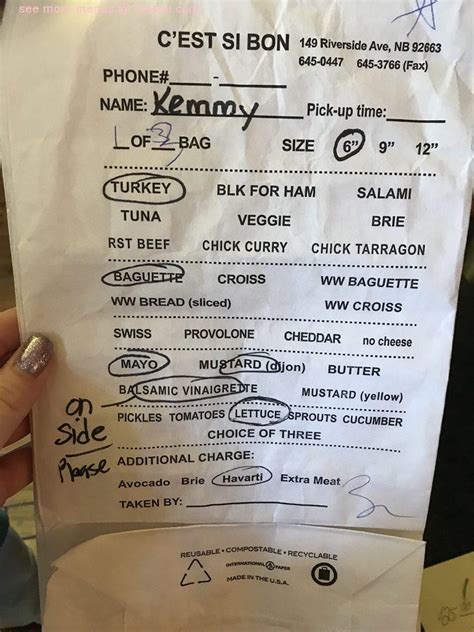 see more menus at
C'EST SI BON 149 Riverside Ave, NB 92663
645-0447 645-3766 (Fax)
PHONE#____-____
NAME: Kemmy Pick-up time:____
1 OF BAG SIZE 6" 9" 12"
TURKEY BLK FOR HAM SALAMI
TUNA VEGGIE BRIE
RST BEEF CHICK CURRY CHICK TARRAGON
BAGUETTE CROISS WW BAGUETTE
WW BREAD (sliced) WW CROISS
SWISS PROVOLONE CHEDDAR no cheese
MAYO MUSTARD (dijon) BUTTER
BALSAMIC VINAIGRETTE MUSTARD (yellow)
on side please
PICKLES TOMATOES LETTUCE SPROUTS CUCUMBER
CHOICE OF THREE
ADDITIONAL CHARGE:
Avocado Brie Havarti Extra Meat
TAKEN BY:____
REUSABLE • COMPOSTABLE • RECYCLABLE
INTERNATIONAL PAPER
MADE IN THE U.S.A.